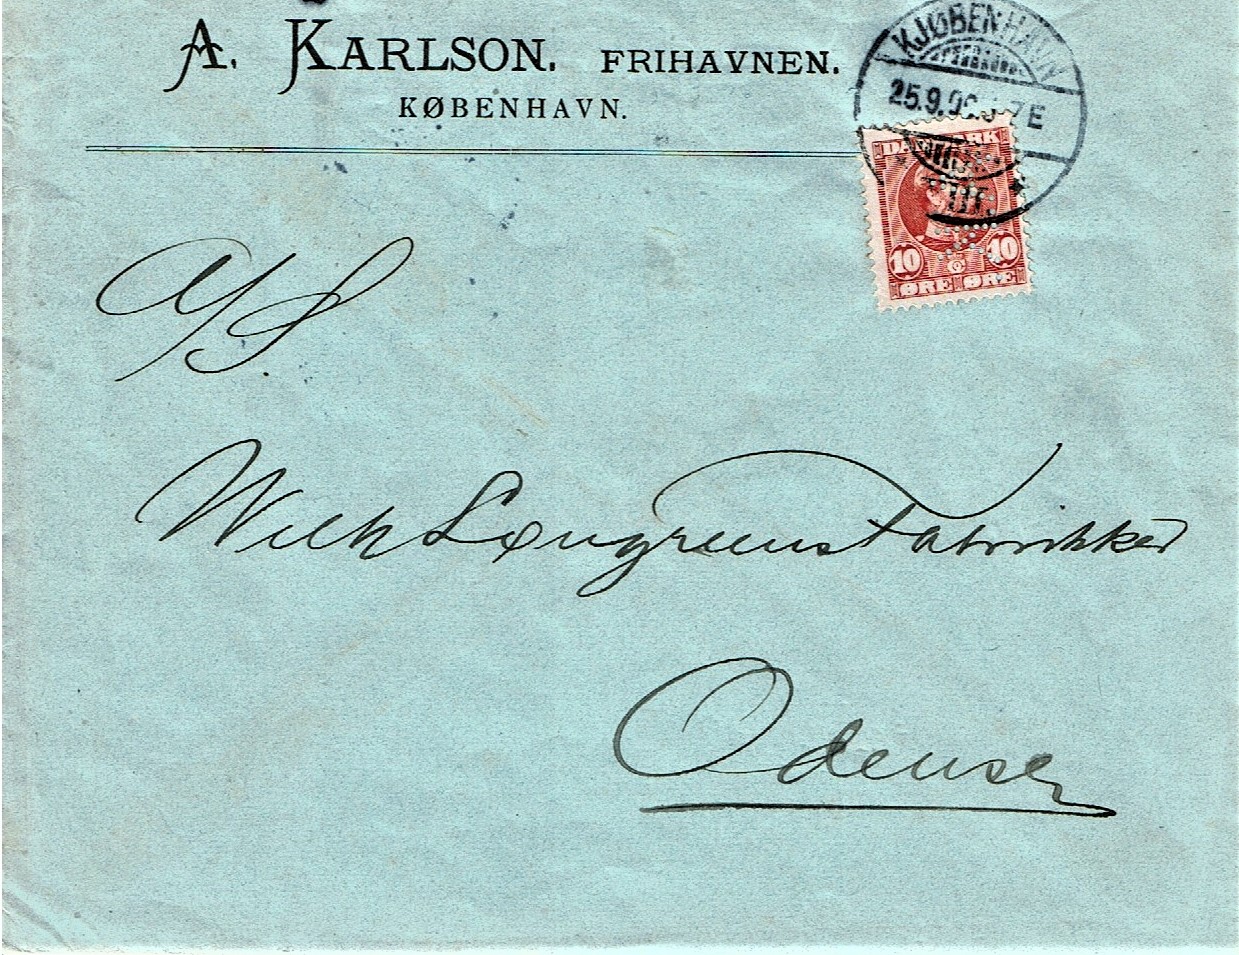 A. KARLSON. FRIHAVNEN.
KØBENHAVN.
KJØBENHAVN
25.9.0 7E
III.
DANMARK
10 10
ØRE ØRE
A/S.
Wilh Langreens Fabrikker
Odense